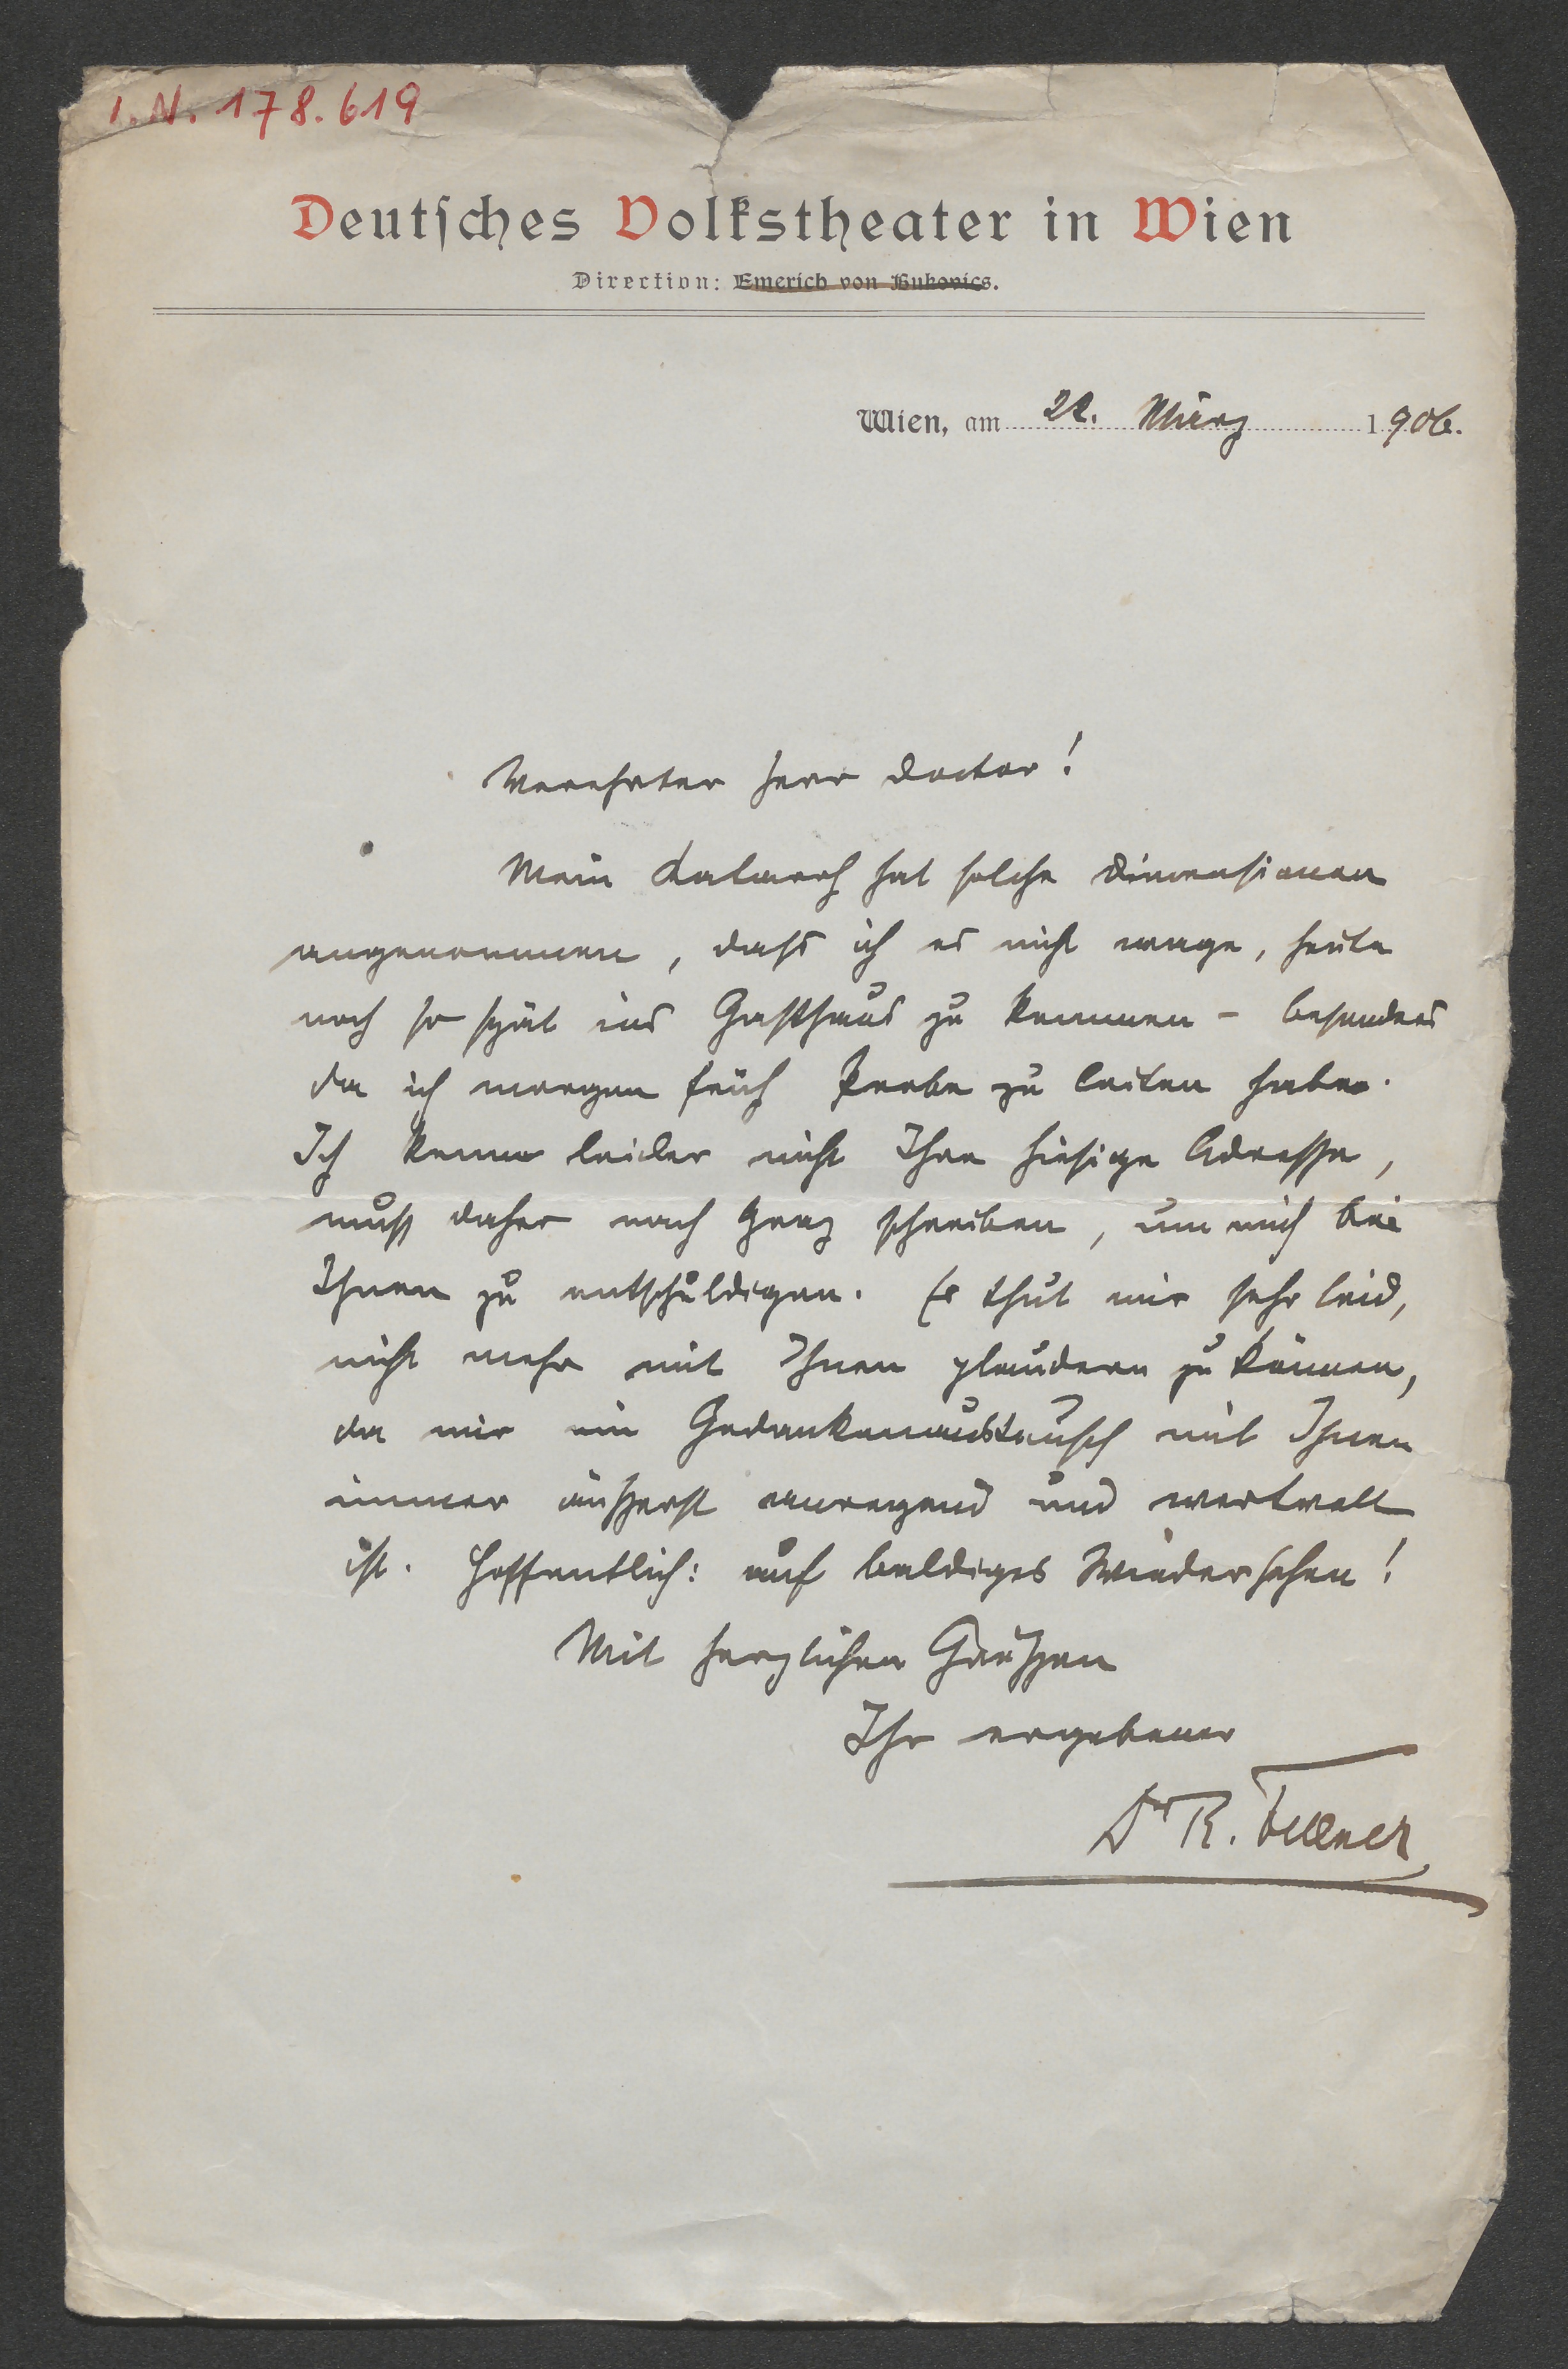 I.N. 178.619
Deutſches Volkstheater in Wien
Direction: Emerich von Bukovics.
Wien, am 22. März 1906.
Verehrter Herr Doctor!
Mein Katarrh hat solche Dimensionen
angenommen, dass ich es nicht wage, heute
noch so spät ins Gasthaus zu kommen – besonders
da ich morgen früh Probe zu leiten habe.
Ich kenne leider nicht Ihre hiesige Adresse,
muß daher nach Graz schreiben, um mich bei
Ihnen zu entschuldigen. Es thut mir sehr leid,
nicht mehr mit Ihnen plaudern zu können,
da mir ein Gedankenaustausch mit Ihnen
immer äußerst anregend und wertvoll
ist. Hoffentlich: auf baldiges Wiedersehen!
Mit herzlichen Grüßen
Ihr ergebener
Dr R. Fellner